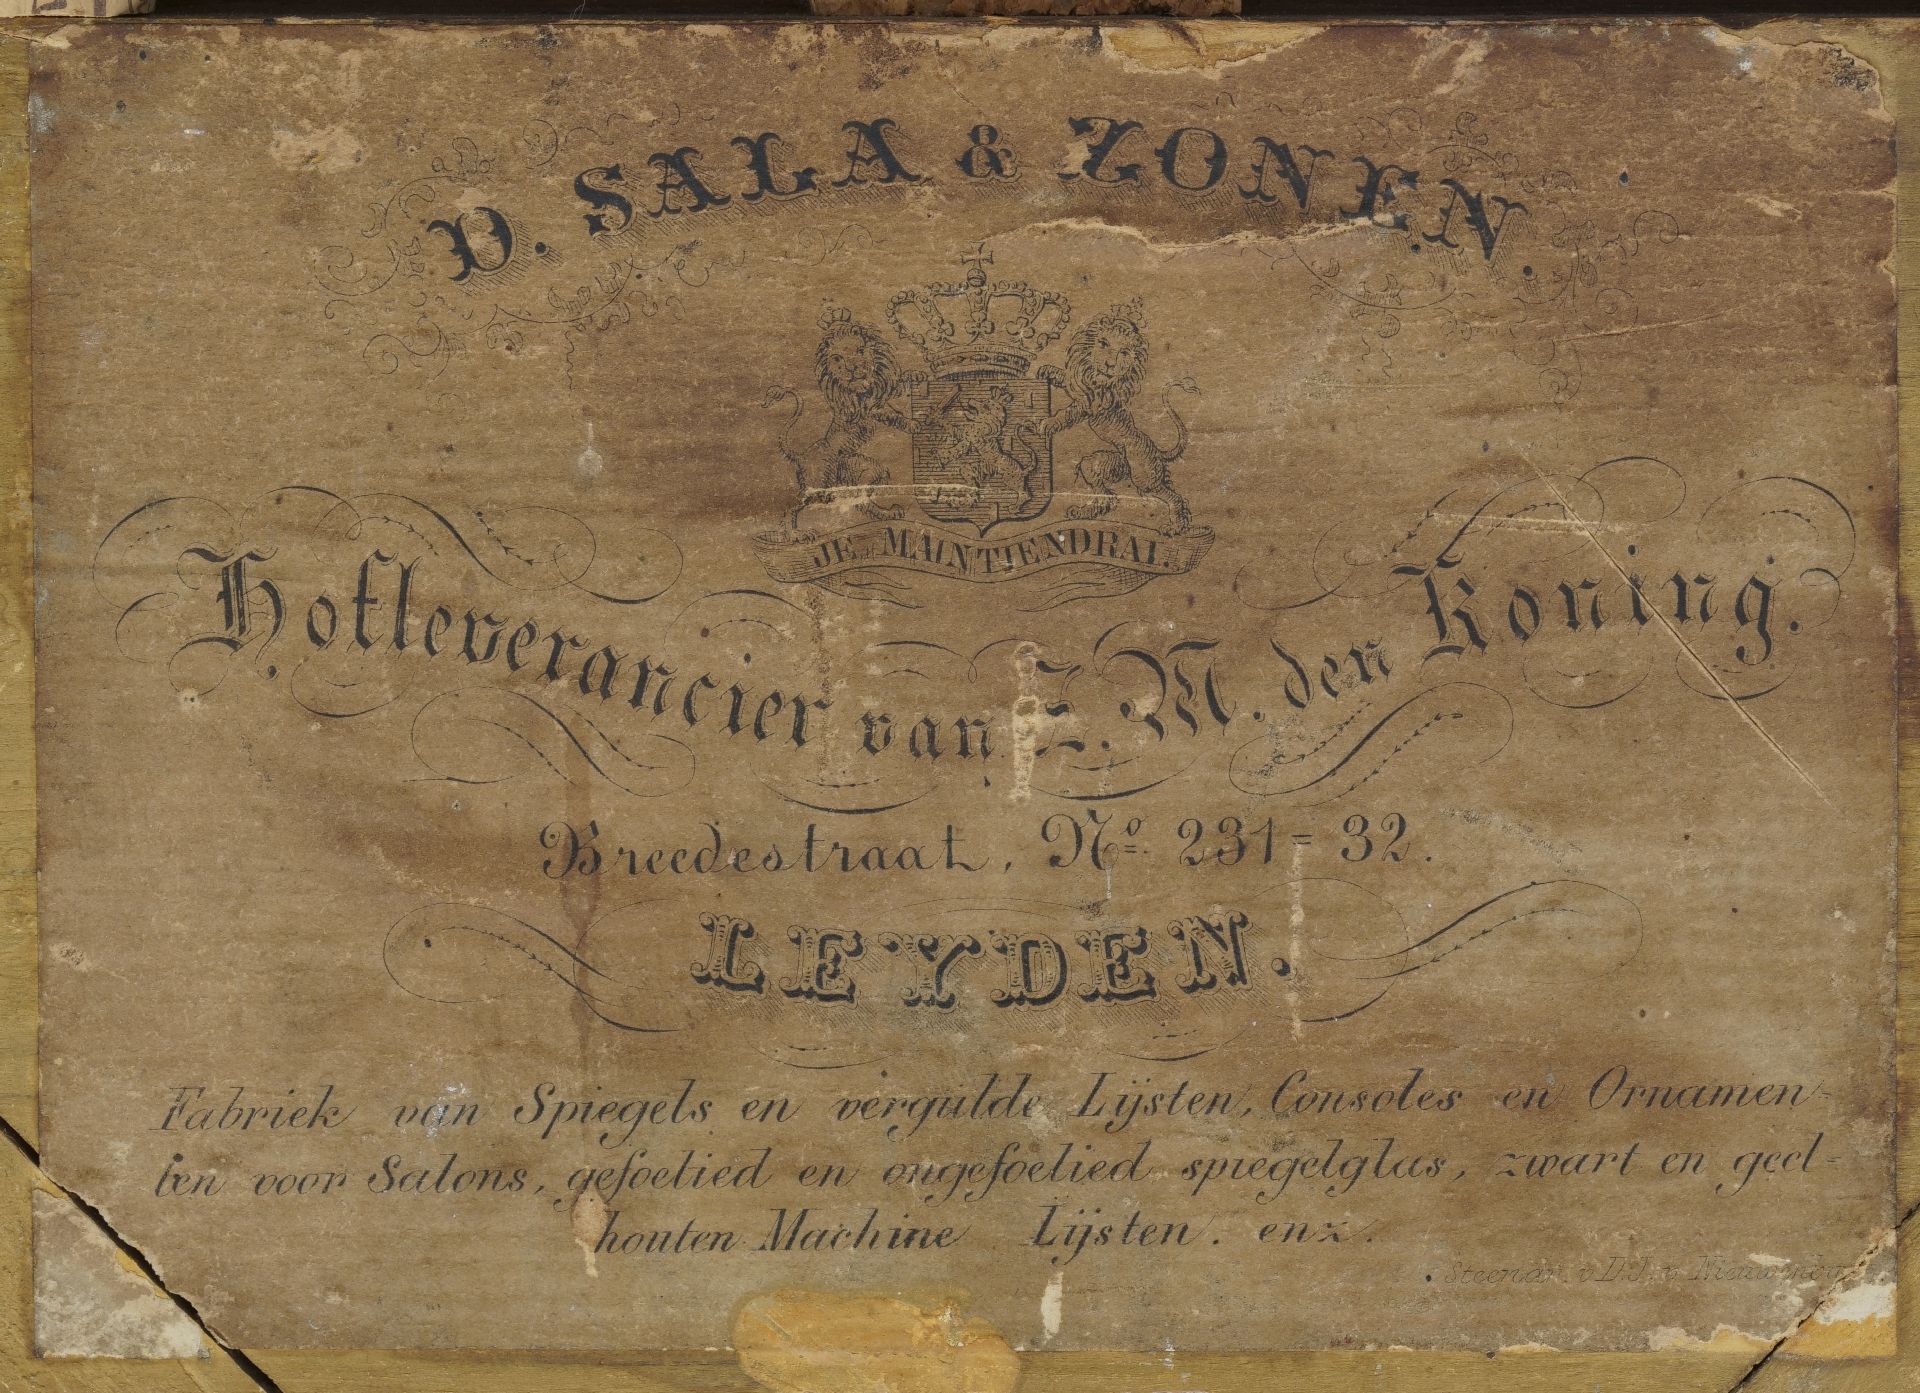 D. SALA & ZONEN.
JE MAINTIENDRAI.
Hofleverancier van Z. M. den Koning.
Breedestraat, No. 231=32.
LEYDEN.
Fabriek van Spiegels en vergulde Lijsten, Consoles en Ornamen-
ten voor Salons, gefoelied en ongefoelied spiegelglas, zwart en geel-
houten Machine Lijsten. enz.
Steendr. v. D. J. v.